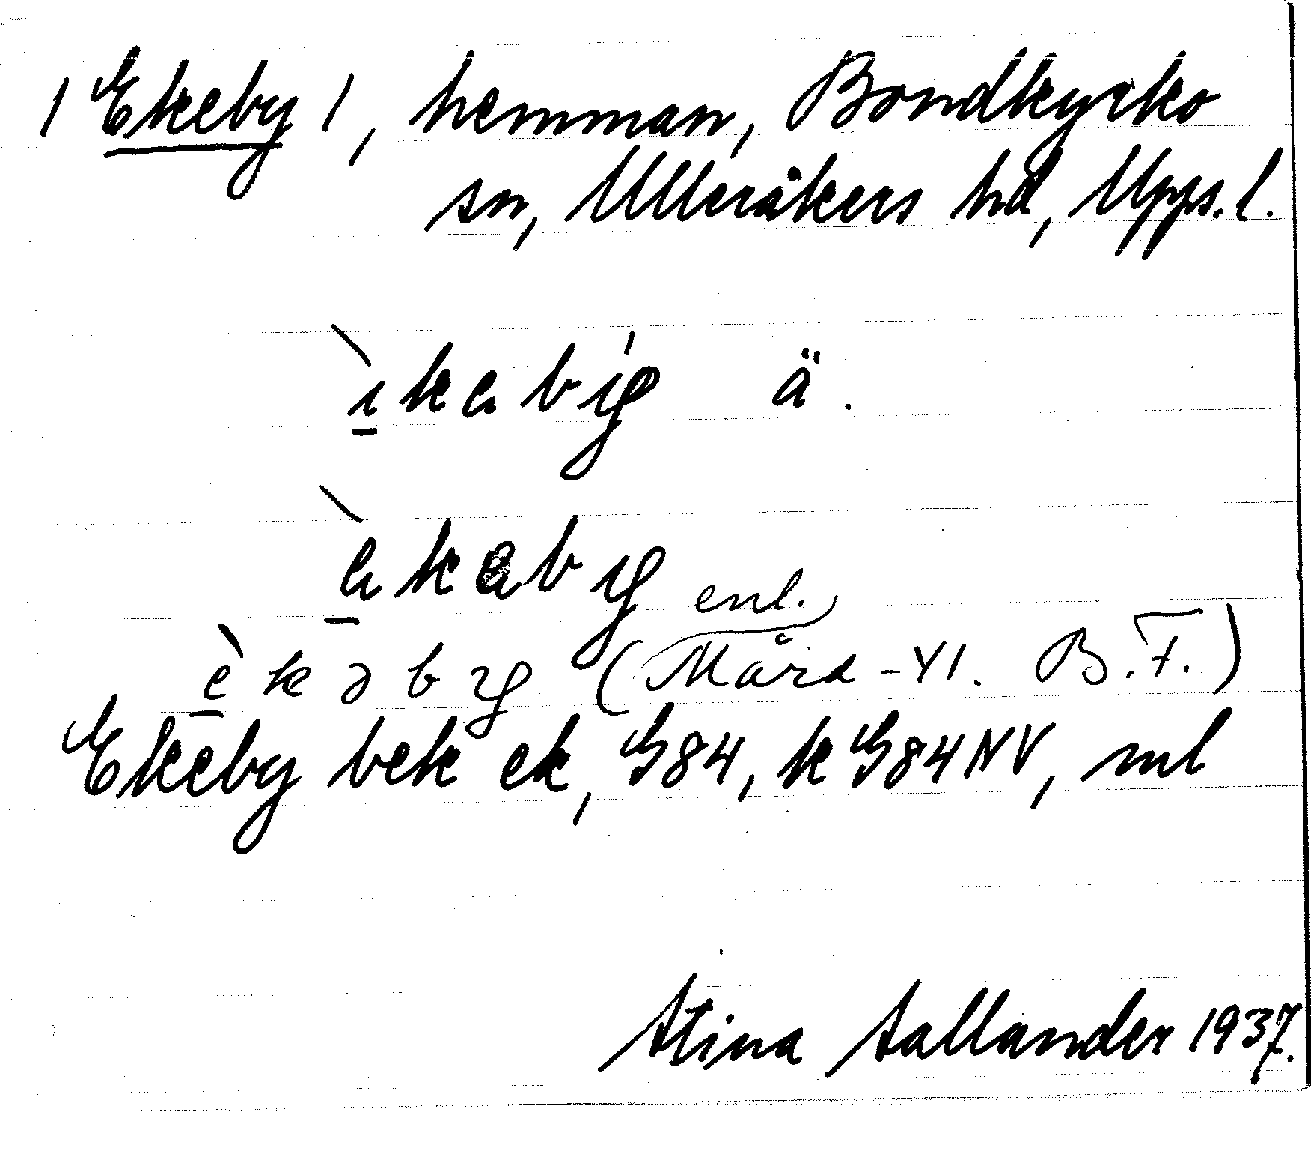 1 Ekeby 1, hemman, Bondkyrko
sn, Ulleråkers hd, Upps. l.
ı̀kebıy ä.
èkebıy
enl.
èkəbıy (Mård -41. B.F.)
Ekeby bek ek, G84, k G84NV, ml
Stina Sallander 1937.